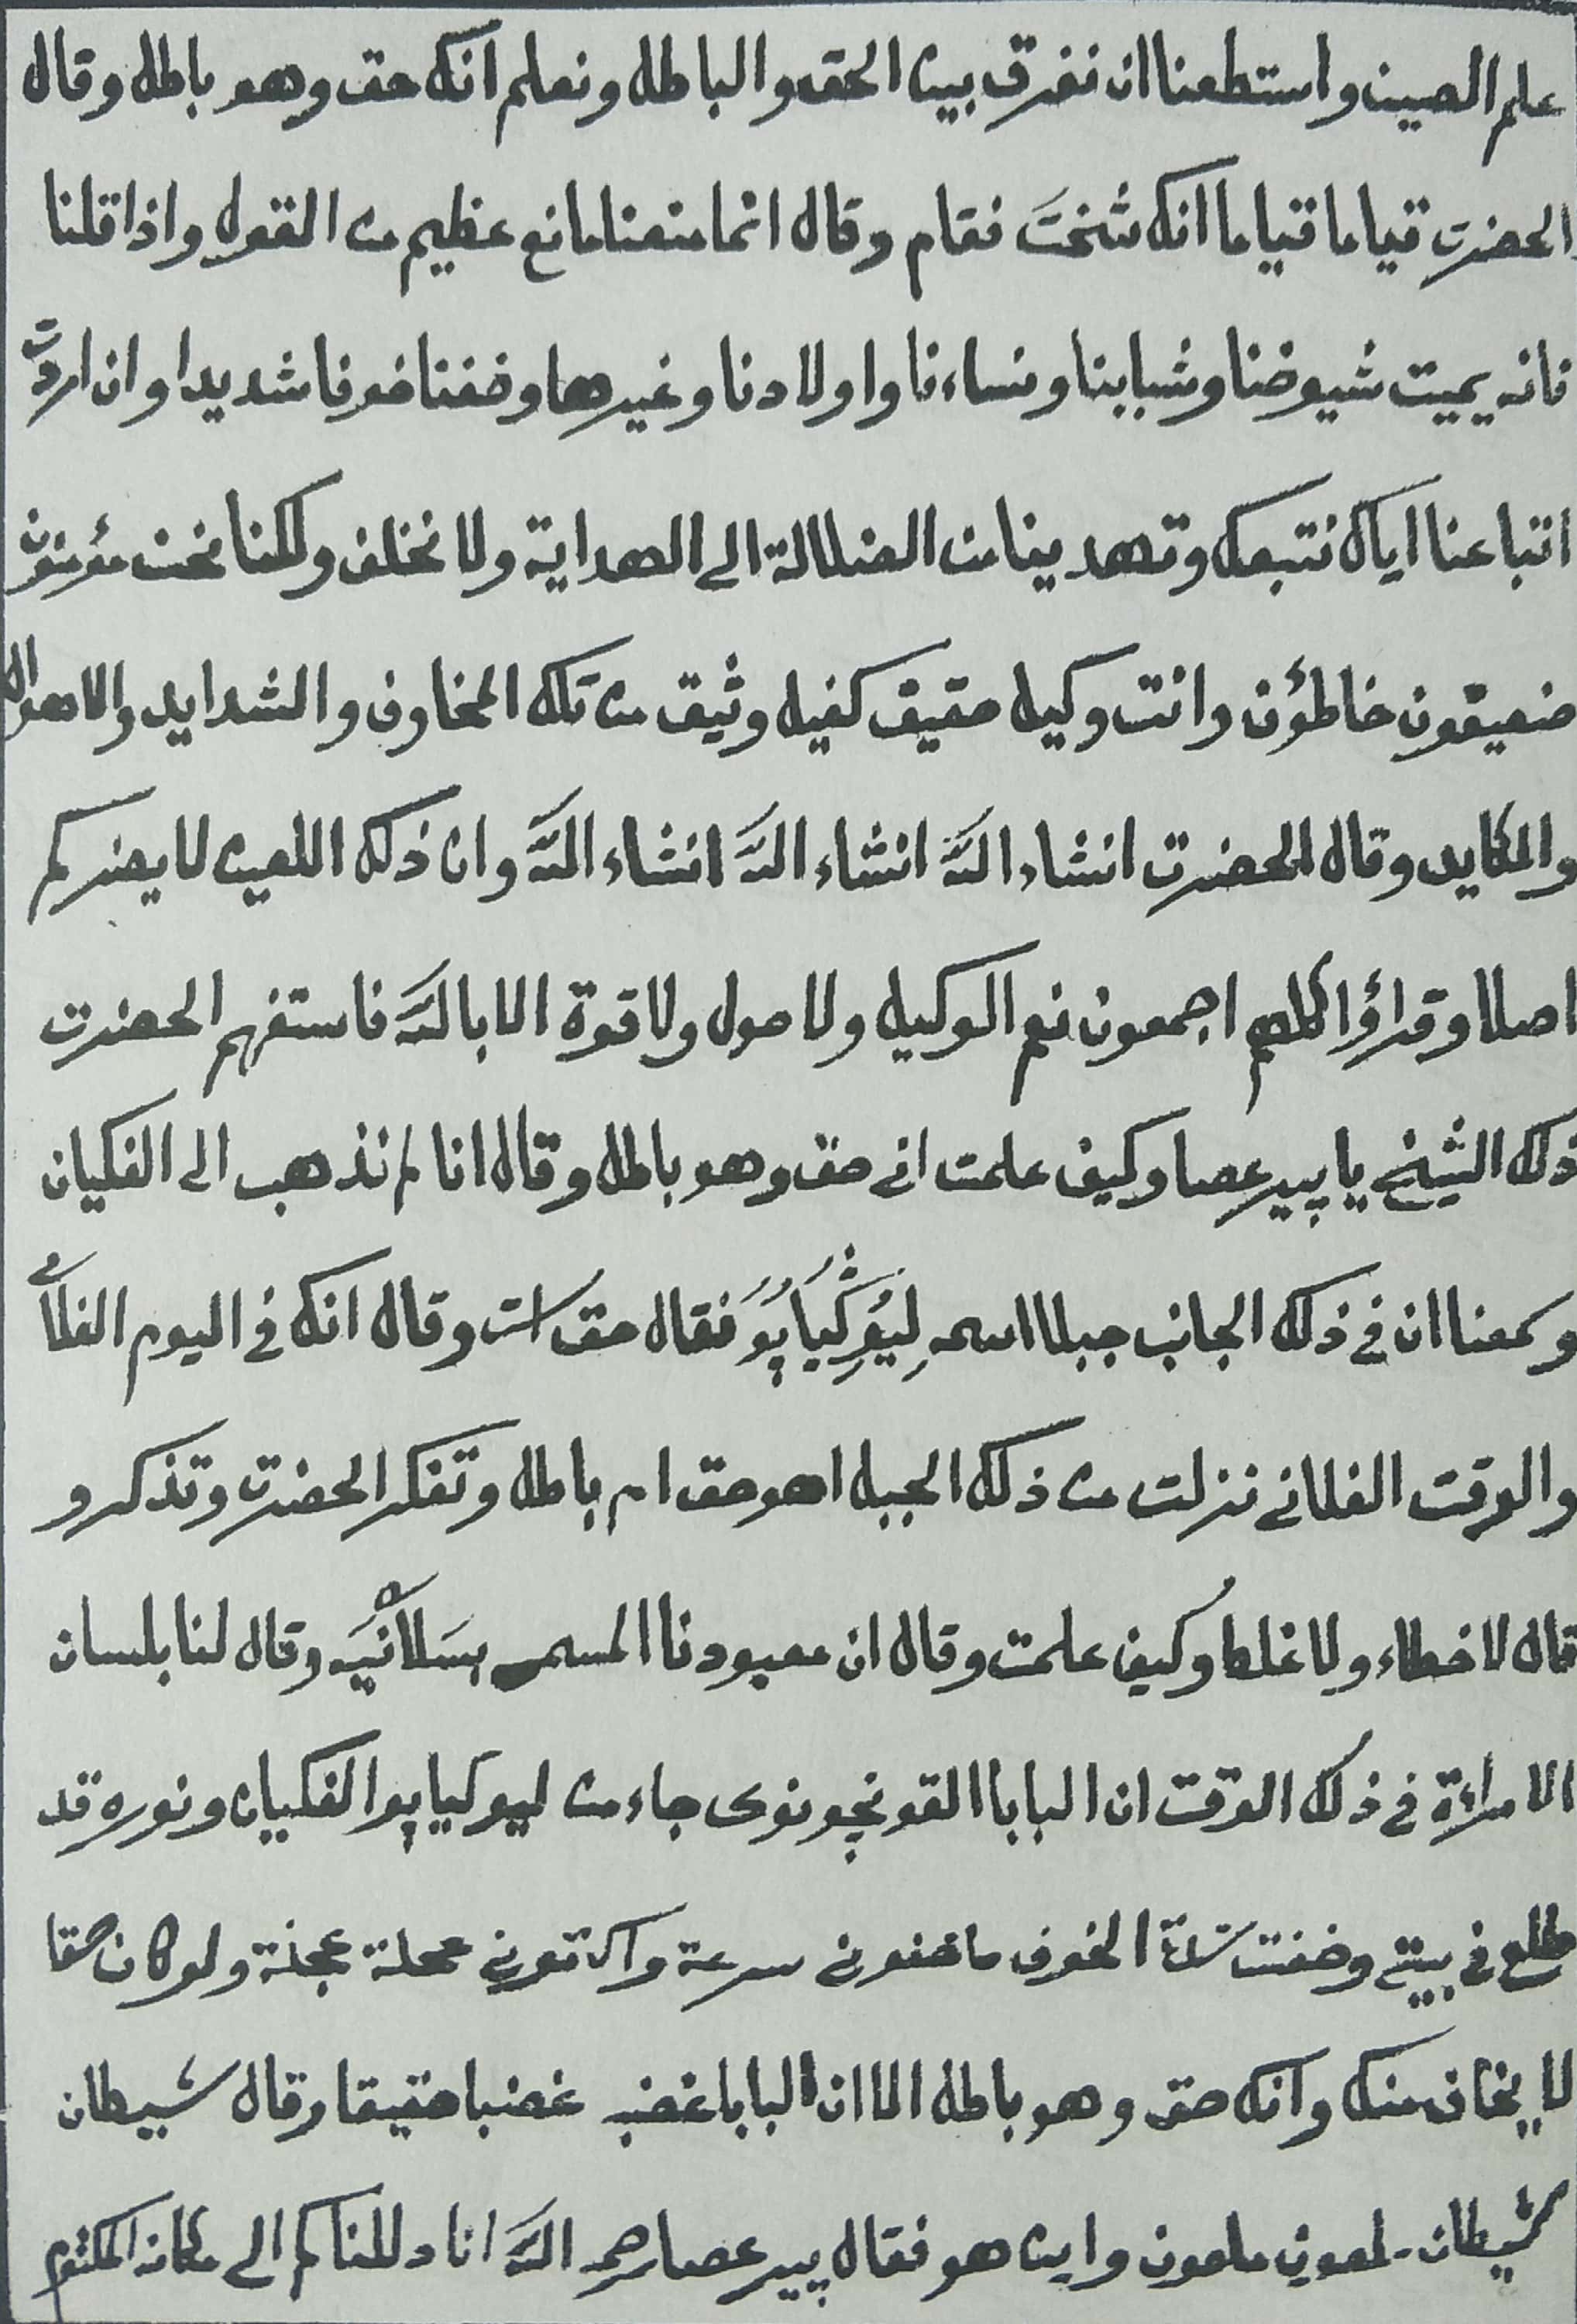 علم الصين واستطعنا ان نفرق بين الحق والباطل ونعلم انك حق وهو باطل وقال
الحضرت قياما قياما انك شخت فقام وقال انما منعنا مانع عظيم من القول واذا قلنا
فانه يميت شيوخنا وشبابنا ونساءنا واولادنا وغيرها وخفنا خوفا شديدا وان اردتَّ
اتباعنا اياك نتبعك وتهدينا من الضلالة الى الهداية ولا نخلف ولكنا نحن مؤمنون
ضعيفون خاطؤن وانت وكيل حقيق كفيل وثيق من تلك المخاوف والشدايد والاهوال
والمكايد وقال الحضرت انشاء اللّٰه انشاء اللّٰه انشاء اللّٰه وان ذلك اللعين لا يضركم
اصلا وقراؤا كلهم اجمعون نعم الوكيل ولا حول ولا قوة الا باللّٰه فاستفهم الحضرت
ذلك الشيخ يا پير عصا وكيف علمت انى حق وهو باطل وقال انا لم نذهب الى الفكيان
وسمعنا ان فى ذلك الجانب جبلا اسمه لِيُوِكِّيَاپُو فقال حق است وقال انك فى اليوم الفلانى
والوقت الفلانى نزلت من ذلك الجبل اهو حق ام باطل وتفكر الحضرت وتذكر و
قال لا خطاء ولا غلط وكيف علمت وقال ان معبودنا المسمى بسَلاَنْيَه وقال لنا بلسان
الامراءة فى ذلك الوقت ان البابا القونچونوى جاء من ليوكياپو الفكيان ونوره قد
طلع فى بيتى وخفت شدة الخوف سرعة عجلة عجلة ولو كان حقا
لا يخاف منك وانك حق وهو باطل الا ان البابا غضب غضبا حقيقا وقال شيطان
شيطان ملعون ملعون واين هو فقال پير عصا رحمه اللّٰه انا دللناكم الى مكانه المكتوم